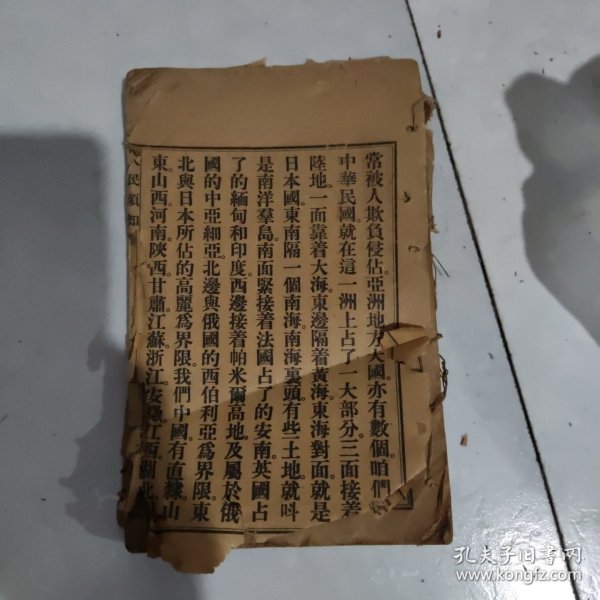 常被人欺負侵佔。亞洲地方大國。亦有數個。咱們
中華民國。就在這一洲上占了一大部分。三面接着
陸地。一面靠着大海。東邊隔着黃海。東海對面。就是
日本國。東南隔一個南海。南海裏頭。有些土地。就呌
是南洋羣島。南面緊接着法國占了的安南。英國占
了的緬甸和印度。西邊接着帕米爾高地。及屬於俄
國的中亞細亞。北邊與俄國的西伯利亞爲界限。東
北與日本所佔的高麗爲界限。我們中國。有直隸。山
東。山西。河南。陝西。甘肅。江蘇。浙江。安徽。江西。湖北
人民須知
孔夫子旧书网
www.kongfz.com